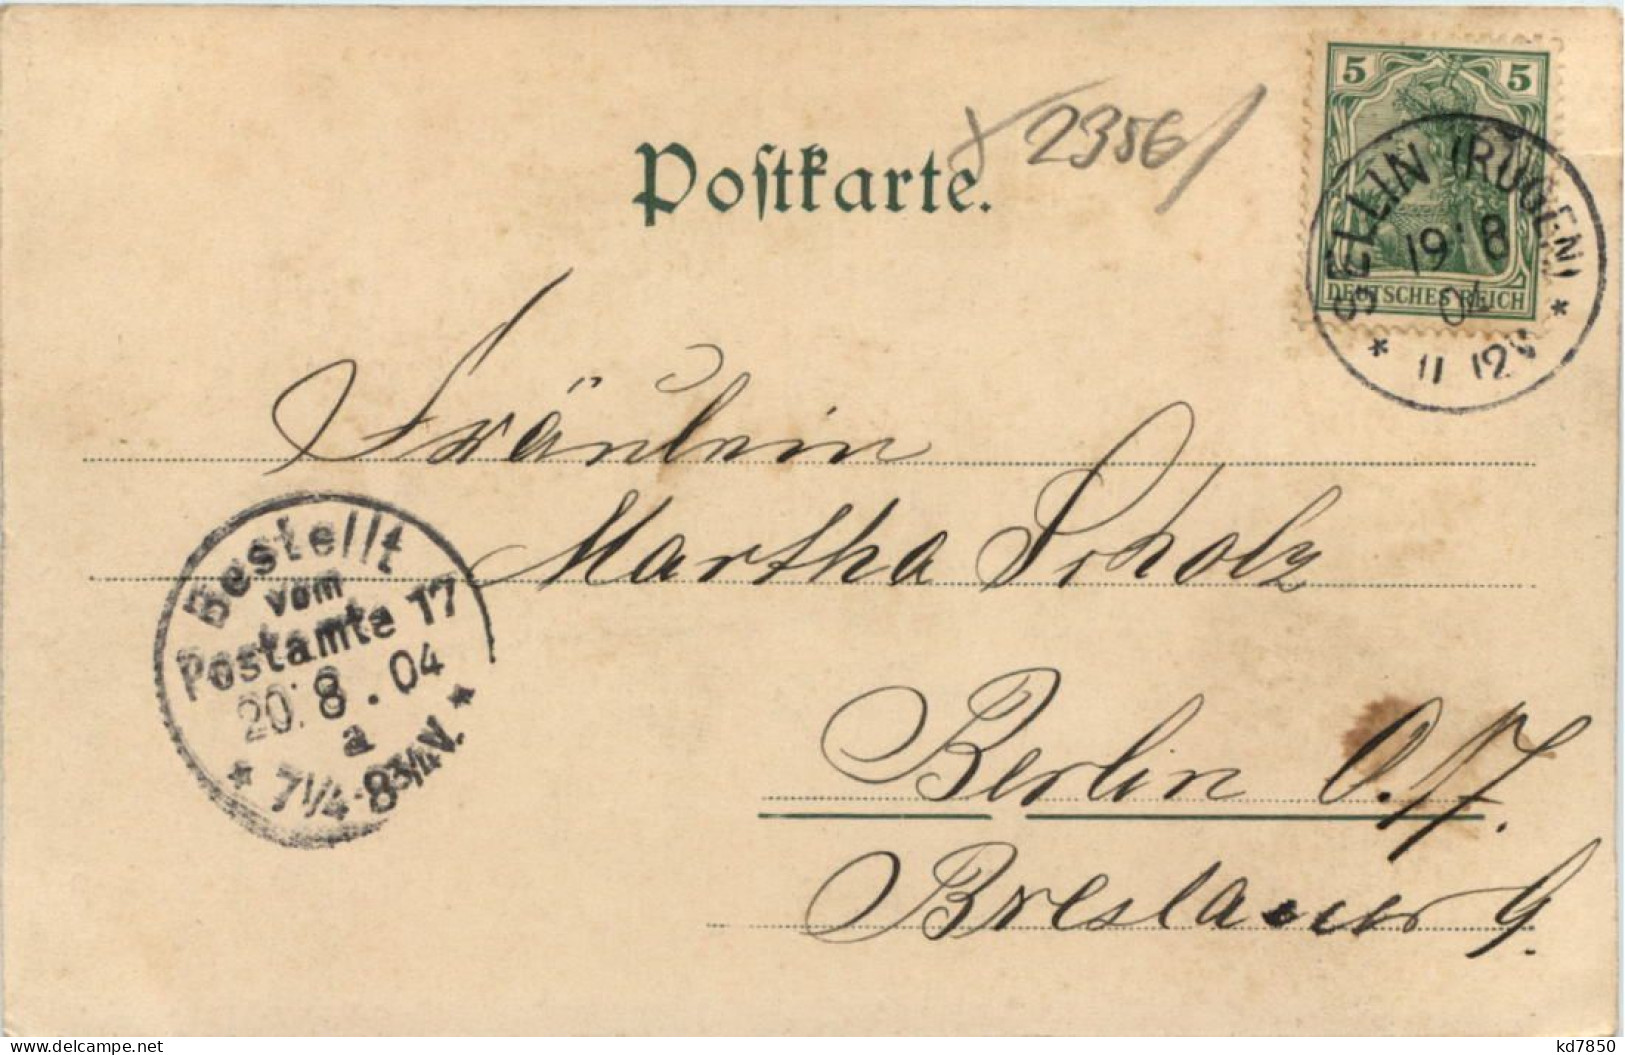 Postkarte.
2356
5 5
DEUTSCHES REICH
SELLIN (RÜGEN)
19.8
04
* 11 12V *
Fräulein
Martha Scholz
Bestellt
vom
Postamte 17
20.8.04
a
* 7¼-8¾V. *
Berlin O. 17.
Breslauer 9.
kd7850